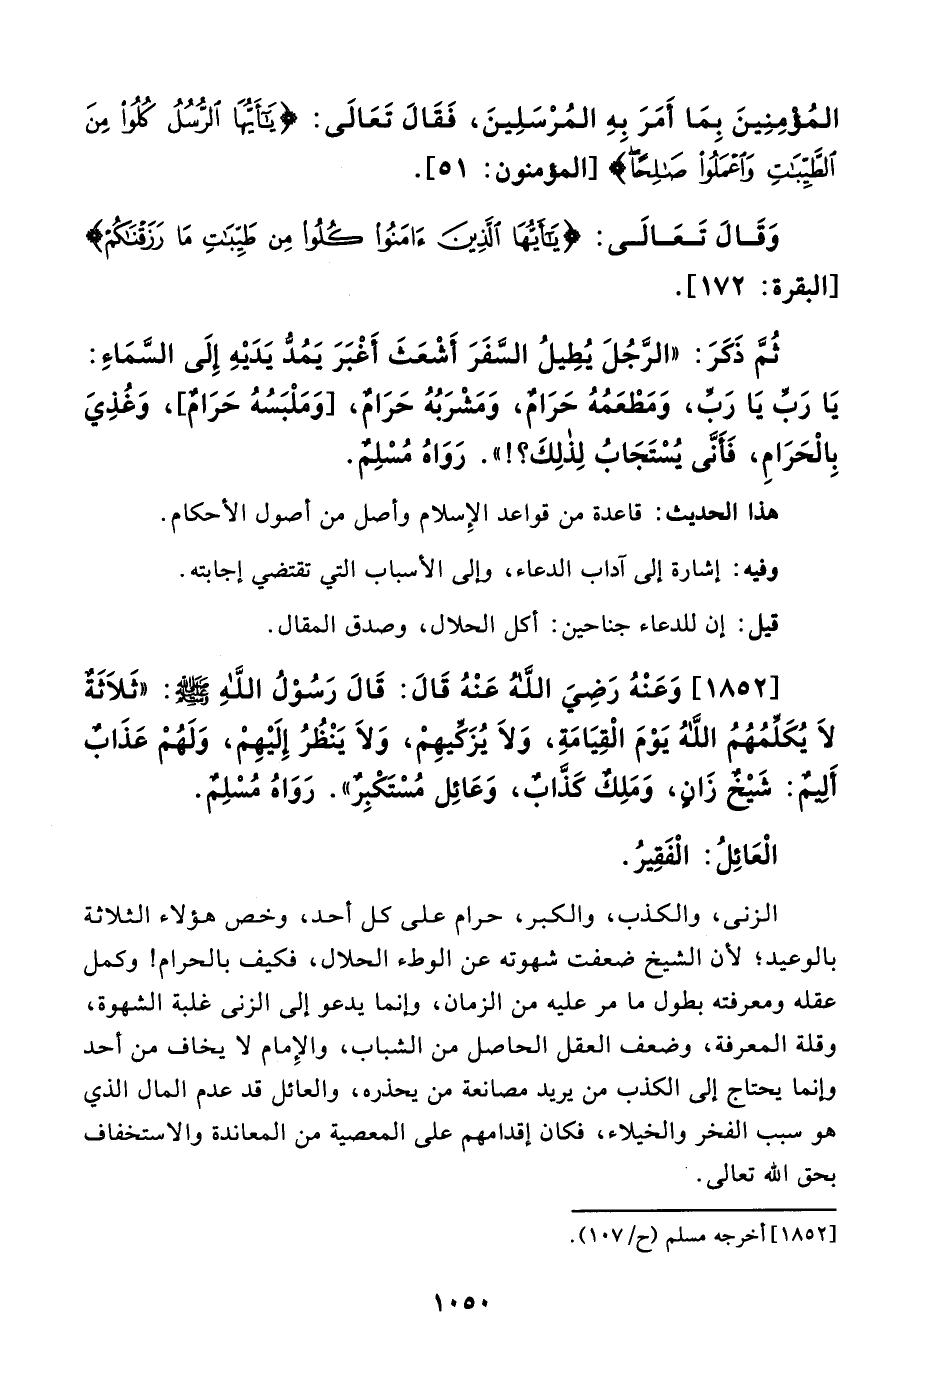 المُؤْمِنِينَ بِمَا أَمَرَ بِهِ المُرْسَلِينَ، فَقَالَ تَعَالَى: ﴿يَٰٓأَيُّهَا ٱلرُّسُلُ كُلُوا۟ مِنَ
ٱلطَّيِّبَٰتِ وَٱعْمَلُوا۟ صَٰلِحًاۖ﴾ [المؤمنون: ٥١].
وَقَـالَ تَـعَـالَـى: ﴿يَٰٓأَيُّهَا ٱلَّذِينَ ءَامَنُوا۟ كُلُوا۟ مِن طَيِّبَٰتِ مَا رَزَقْنَٰكُمْ﴾
[البقرة: ١٧٢].
ثُمَّ ذَكَرَ: «الرَّجُلَ يُطِيلُ السَّفَرَ أَشْعَثَ أَغْبَرَ يَمُدُّ يَدَيْهِ إِلَى السَّمَاءِ:
يَا رَبِّ يَا رَبِّ، وَمَطْعَمُهُ حَرَامٌ، وَمَشْرَبُهُ حَرَامٌ، [وَمَلْبَسُهُ حَرَامٌ]، وَغُذِيَ
بِالْحَرَامِ، فَأَنَّى يُسْتَجَابُ لِذٰلِكَ؟!». رَوَاهُ مُسْلِمٌ.
هذا الحديث: قاعدة من قواعد الإسلام وأصل من أصول الأحكام.
وفيه: إشارة إلى آداب الدعاء، وإلى الأسباب التي تقتضي إجابته.
قيل: إن للدعاء جناحين: أكل الحلال، وصدق المقال.
[١٨٥٢] وَعَنْهُ رَضِيَ اللَّهُ عَنْهُ قَالَ: قَالَ رَسُوْلُ اللَّهِ ﷺ: «ثَلَاثَةٌ
لَا يُكَلِّمُهُمُ اللَّهُ يَوْمَ الْقِيَامَةِ، وَلَا يُزَكِّيهِمْ، وَلَا يَنْظُرُ إِلَيْهِمْ، وَلَهُمْ عَذَابٌ
أَلِيمٌ: شَيْخٌ زَانٍ، وَمَلِكٌ كَذَّابٌ، وَعَائِل مُسْتَكْبِرٌ». رَوَاهُ مُسْلِمٌ.
الْعَائِلُ: الْفَقِيرُ.
الزنى، والكذب، والكبر، حرام على كل أحد، وخص هؤلاء الثلاثة
بالوعيد؛ لأن الشيخ ضعفت شهوته عن الوطء الحلال، فكيف بالحرام! وكمل
عقله ومعرفته بطول ما مر عليه من الزمان، وإنما يدعو إلى الزنى غلبة الشهوة،
وقلة المعرفة، وضعف العقل الحاصل من الشباب، والإمام لا يخاف من أحد
وإنما يحتاج إلى الكذب من يريد مصانعة من يحذره، والعائل قد عدم المال الذي
هو سبب الفخر والخيلاء، فكان إقدامهم على المعصية من المعاندة والاستخفاف
بحق الله تعالى.
[١٨٥٢] أخرجه مسلم (ح/١٠٧).
١٠٥٠